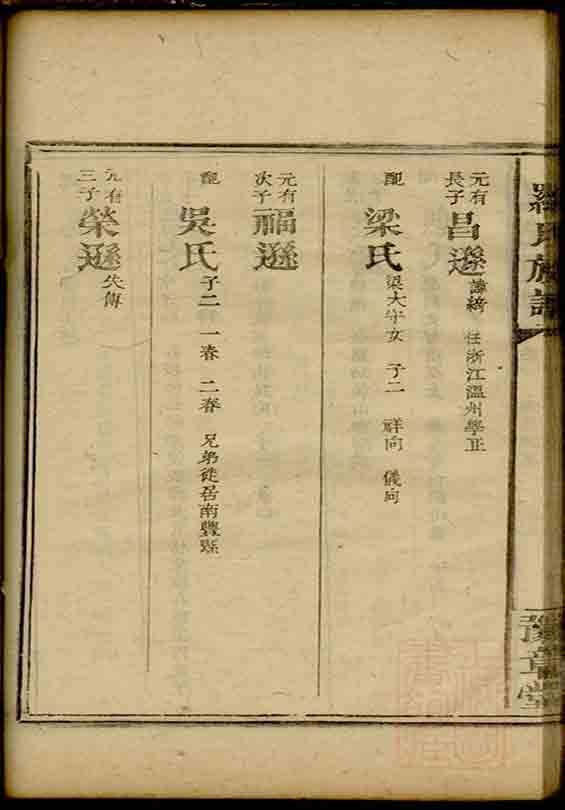 羅氏族譜
豫章堂
元有長子 昌遜 諱綺 任浙江溫州學正
配 梁氏 梁大守女 子二 祥向 儀向
元有次子 福遜
配 吳氏 子二 一春 二春 兄弟徙居南豐縣
元有三子 榮遜 失傳